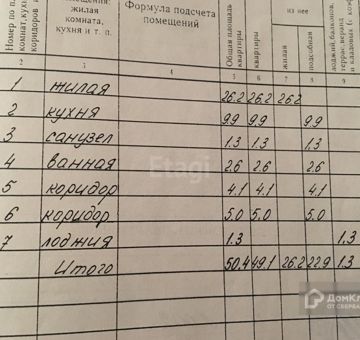 Номер по пл
комнат, кухн
коридоров и
жилая
комната,
кухня и т. п.
Формула подсчета
помещений
Общая площадь
квартиры
квартиры
из нее
жилая
подсобная
лоджий, балконов,
террас, веранд
и кладовых (с коэф
2 3 4 5 6 7 8 9
1 жилая 26.2 26.2 26.2
2 кухня 9.9 9.9 9.9
3 санузел 1.3 1.3 1.3
4 ванная 2.6 2.6 2.6
5 коридор 4.1 4.1 4.1
6 коридор 5.0 5.0 5.0
7 лоджия 1.3 1.3
Итого 50.4 49.1 26.2 22.9 1.3
Etagi
ДомКл
ОТ СБЕРБА